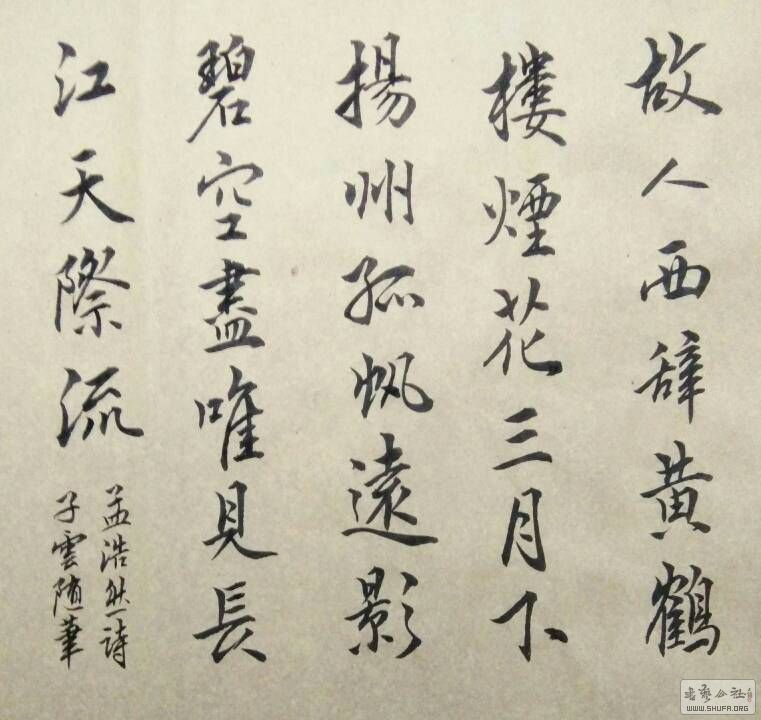 故人西辞黄鶴
樓煙花三月下
揚州孤帆遠影
碧空盡唯見長
江天際流
孟浩然詩
子雲随筆
書藝公社
WWW.SHUFA.ORG